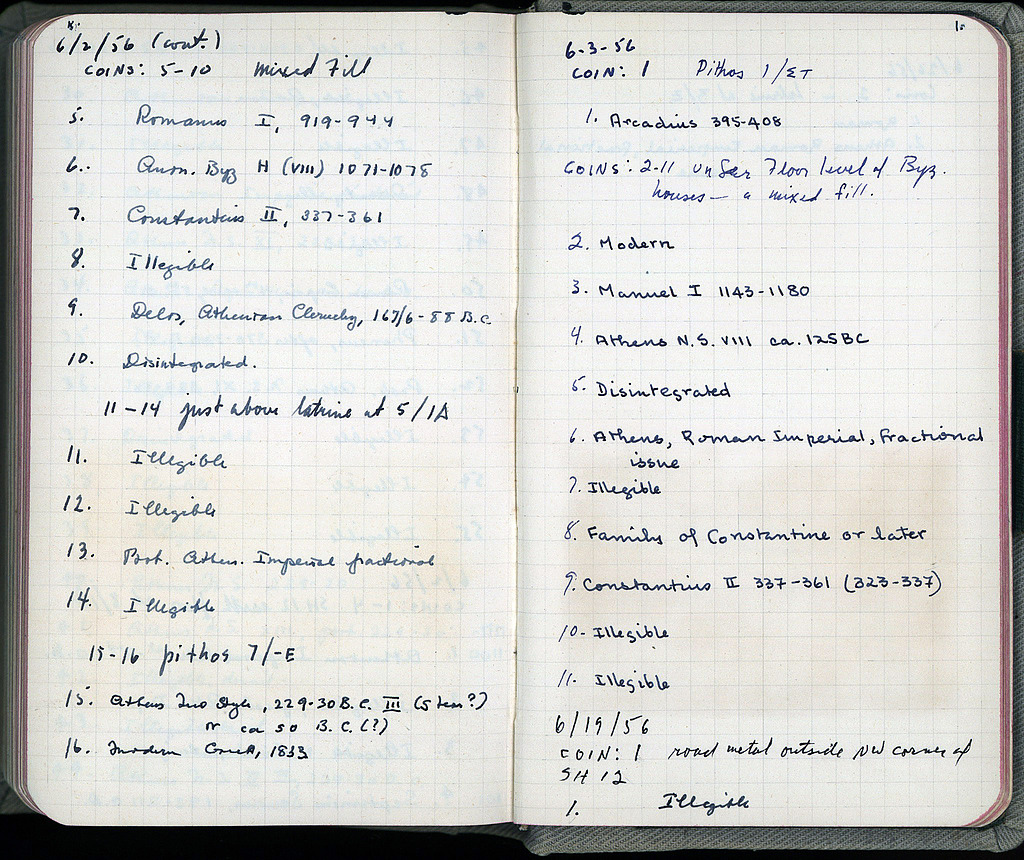 6/2/56 (cont.)
COINS: 5-10 Mixed Fill
5. Romanus I, 919-944
6. Anon. Byz H (VIII) 1071-1078
7. Constantius II, 337-361
8. Illegible
9. Delos, Athenian Cleruchy, 167/6-88 B.C.
10. Disintegrated.
11-14 just above latrine at 5/ΙΔ
11. Illegible
12. Illegible
13. Prob. Athen. Imperial fractional
14. Illegible
15-16 pithos 7/-E
15. Athens New Style, 229-30 B.C. III (?)
or ca 50 B.C. (?)
16. Modern Greek, 1833
6-3-56
COIN: 1 Pithos 1/ΣΤ
1. Arcadius 395-408
COINS: 2-11 under Floor level of Byz.
houses - a mixed fill.
2. Modern
3. Manuel I 1143-1180
4. Athens N.S. VIII ca. 125 BC
5. Disintegrated
6. Athens, Roman Imperial, fractional
issue
7. Illegible
8. Family of Constantine or later
9. Constantius II 337-361 (323-337)
10. Illegible
11. Illegible
6/19/56
COIN: 1 road metal outside NW corner of
SH 12
1. Illegible